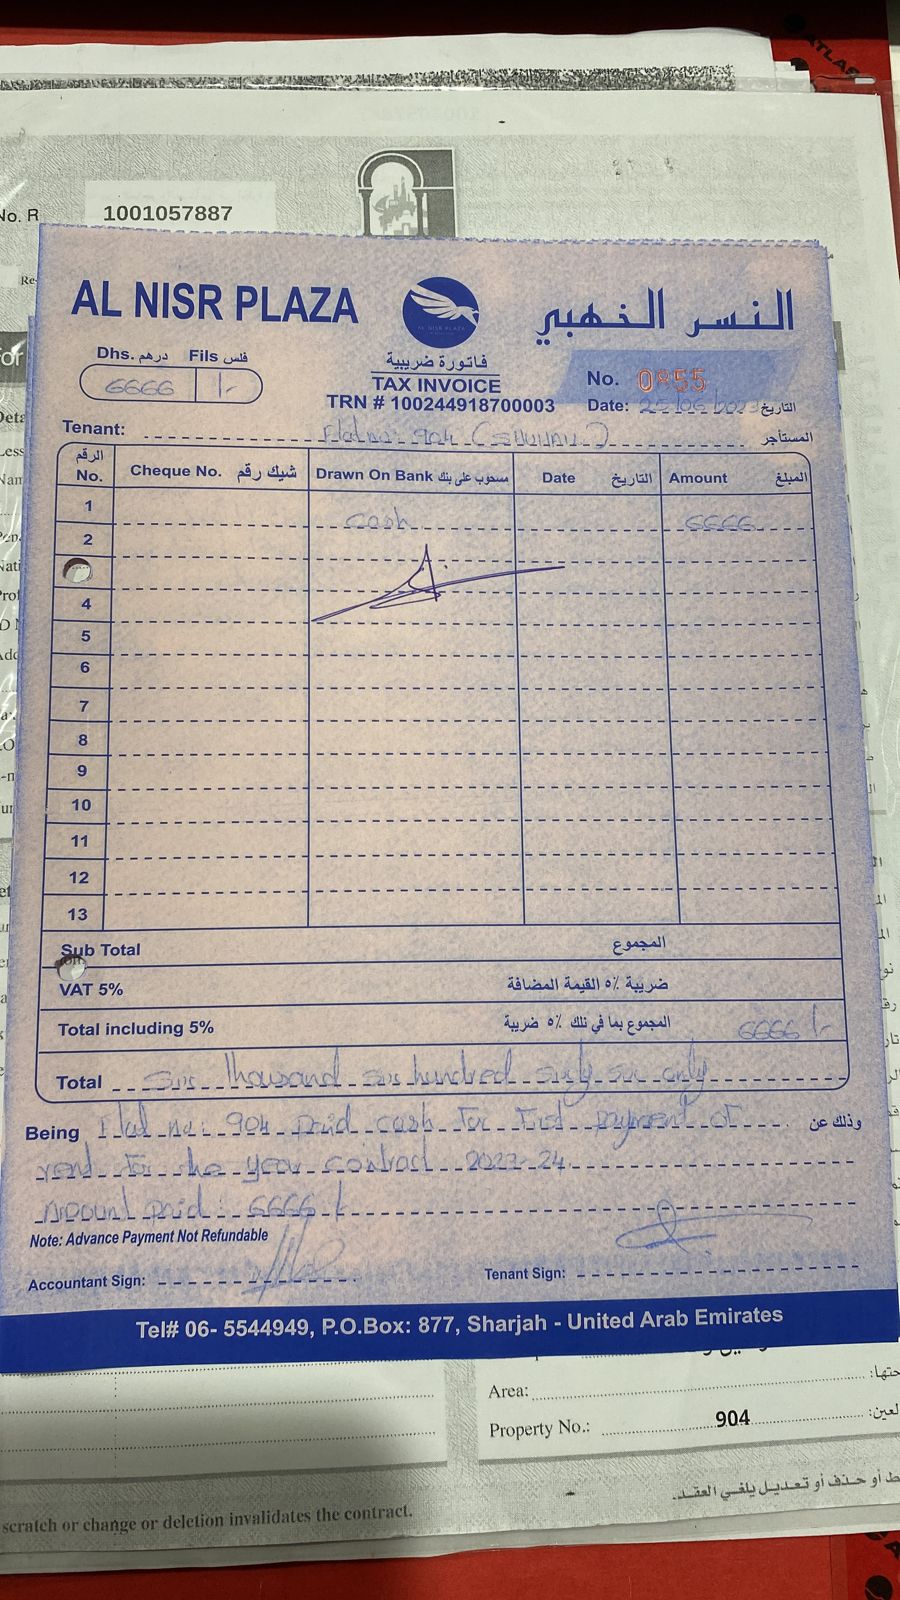 ATLAS
No. R
1001057887
AL NISR PLAZA
AL NISR PLAZA
النسر الخهبي
Dhs. درهم Fils فلس
6666 /-
فاتورة ضريبية
TAX INVOICE
TRN # 100244918700003
No. 0855
Date: 25/06/2023 التاريخ
Tenant: Flat no: 904 المستأجر
الرقم No. Cheque No. شيك رقم Drawn On Bank مسحوب على بنك Date التاريخ Amount المبلغ
1 cash 6666
2
4
5
6
7
8
9
10
11
12
13
Sub Total المجموع
VAT 5% ضريبة ٥٪ القيمة المضافة
Total including 5% المجموع بما في ذلك ٥٪ ضريبة 6666 /-
Total six thousand six hundred sixty six only
Being Flat no: 904 paid cash for first payment of وذلك عن
rent for the year contract 2023-24
Amount paid: 6666 /-
Note: Advance Payment Not Refundable
Accountant Sign: Tenant Sign:
Tel# 06- 5544949, P.O.Box: 877, Sharjah - United Arab Emirates
Area:
Property No.: 904
ط أو حذف أو تعديل يلغي العقد.
scratch or change or deletion invalidates the contract.